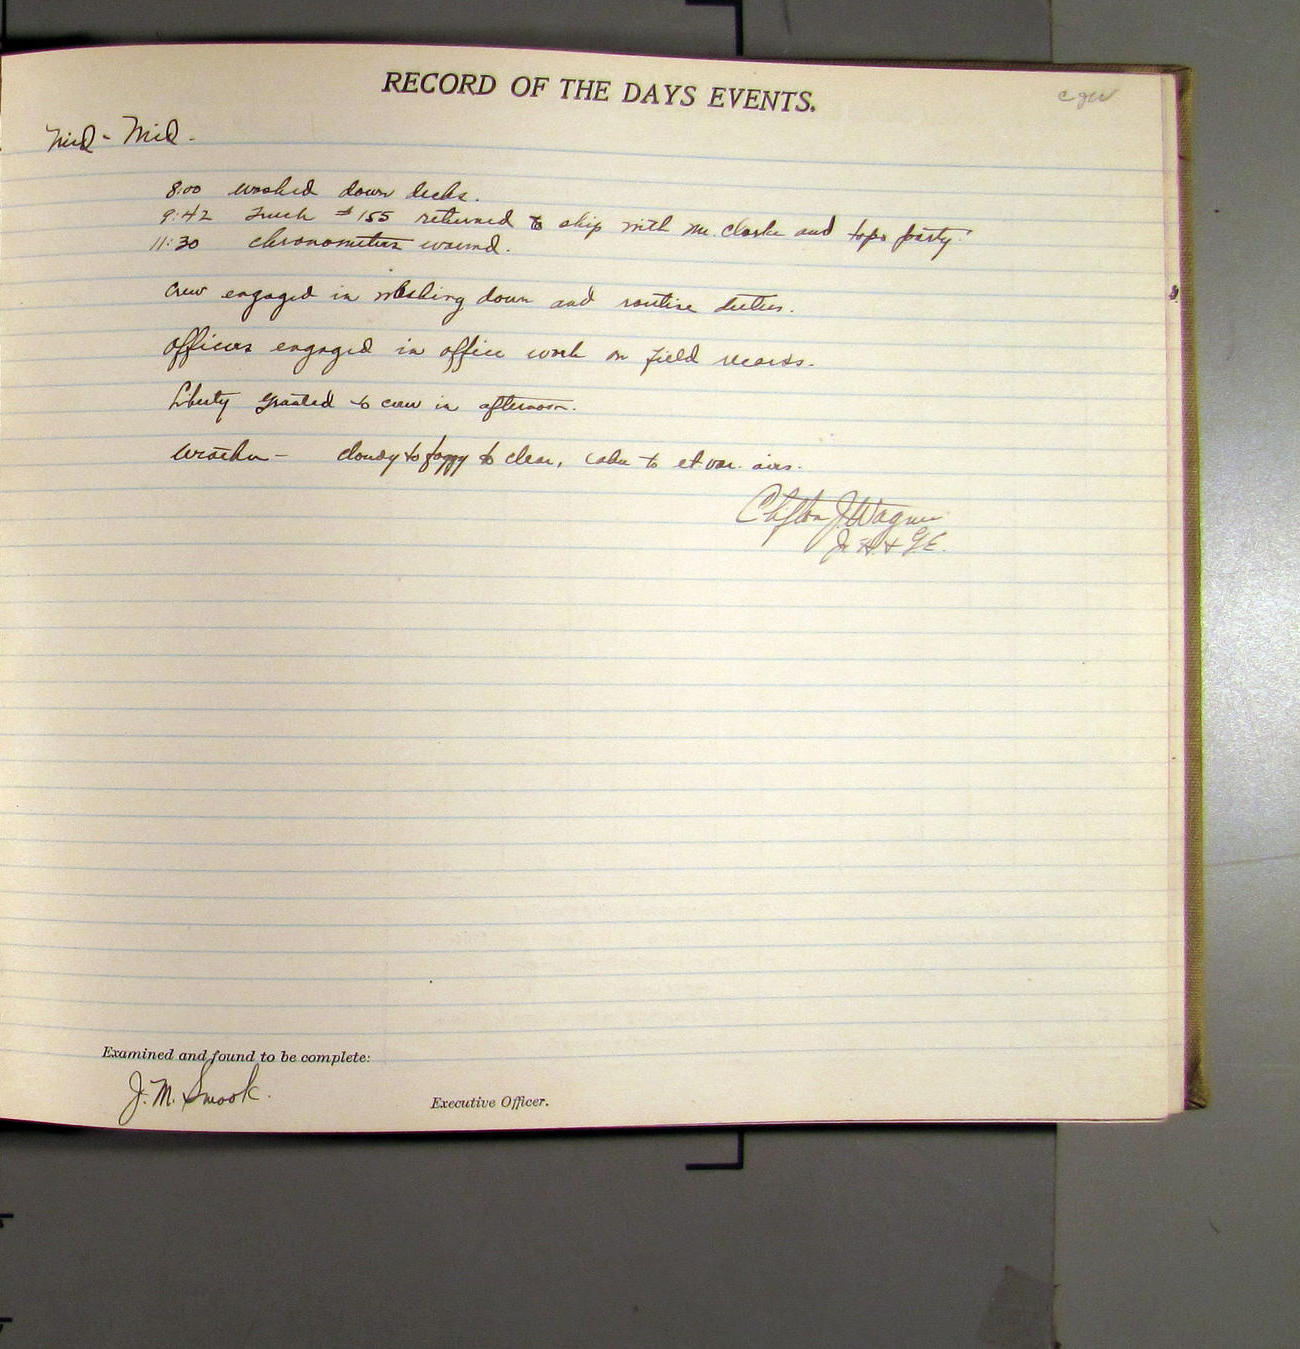 RECORD OF THE DAYS EVENTS.
cgw
Mid - Mid.
8:00 washed down decks.
9:42 Truck #155 returned to ship with Mr. Clarke and topo party.
11:30 chronometers wound.
Crew engaged in washing down and routine duties.
Officers engaged in office work on field records.
Liberty granted to crew in afternoon.
Weather - cloudy to foggy to clear, calm to lt. var. airs.
Clifton J. Wagner
Jr. H. & G.E.
Examined and found to be complete:
J. M. Smook.
Executive Officer.